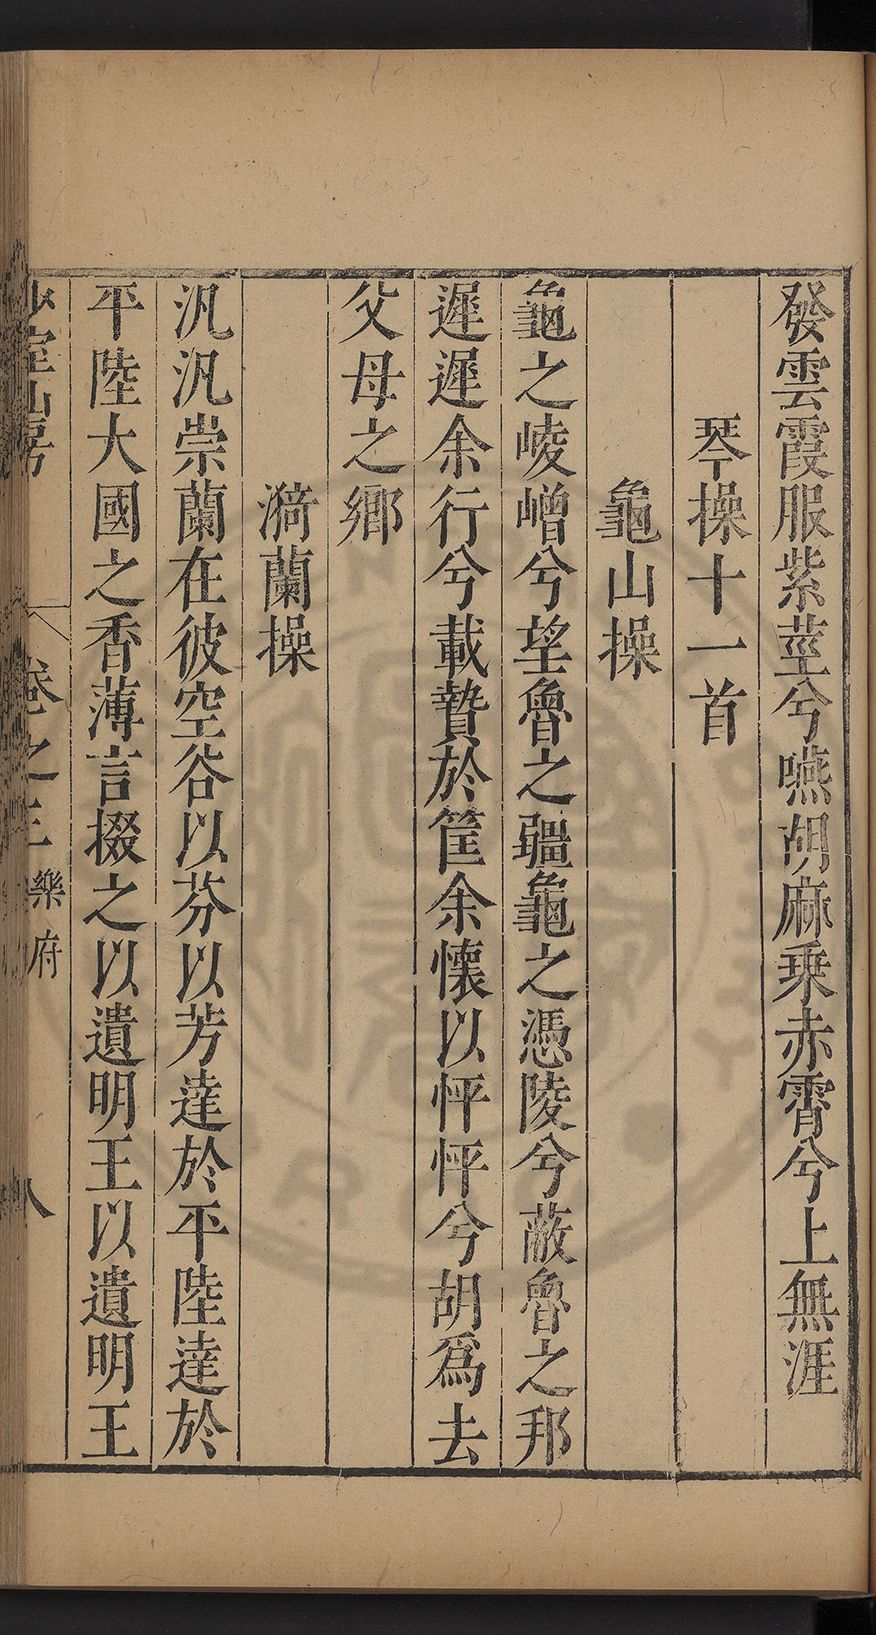 發雲霞服紫莖兮嚥胡麻乗赤霄兮上無涯
琴操十一首
龜山操
龜之崚嶒兮望魯之疆龜之憑陵兮蔽魯之邦
遲遲余行兮載贄於筐余懷以怦怦兮胡爲去
父母之鄉
漪蘭操
汎汎崇蘭在彼空谷以芬以芳達於平陸達於
平陸大國之香薄言掇之以遺明王以遺明王
少室山房
卷之三
樂府
八